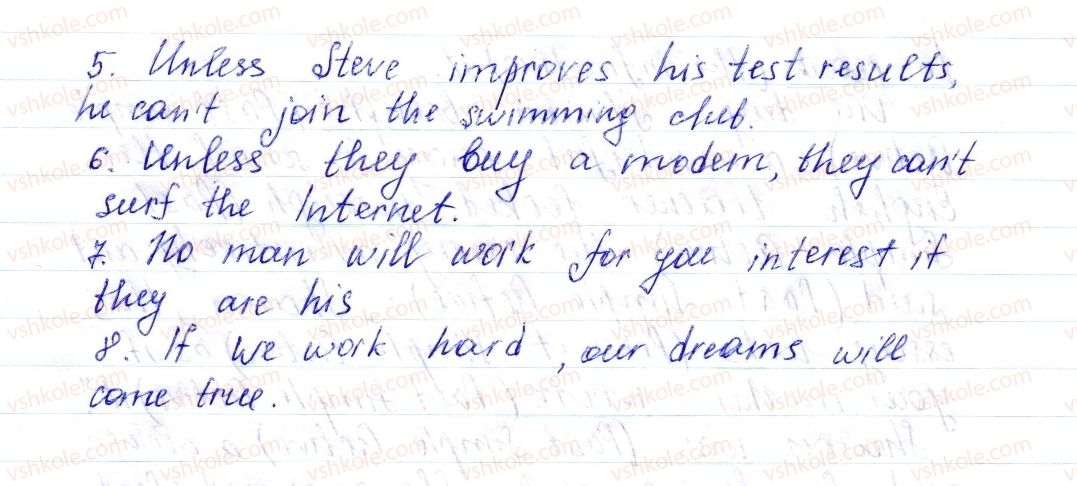 5. Unless Steve improves his test results,
he can't join the swimming club.
6. Unless they buy a modem, they can't
surf the Internet.
7. No man will work for you interest if
they are his
8. If we work hard, our dreams will
come true.